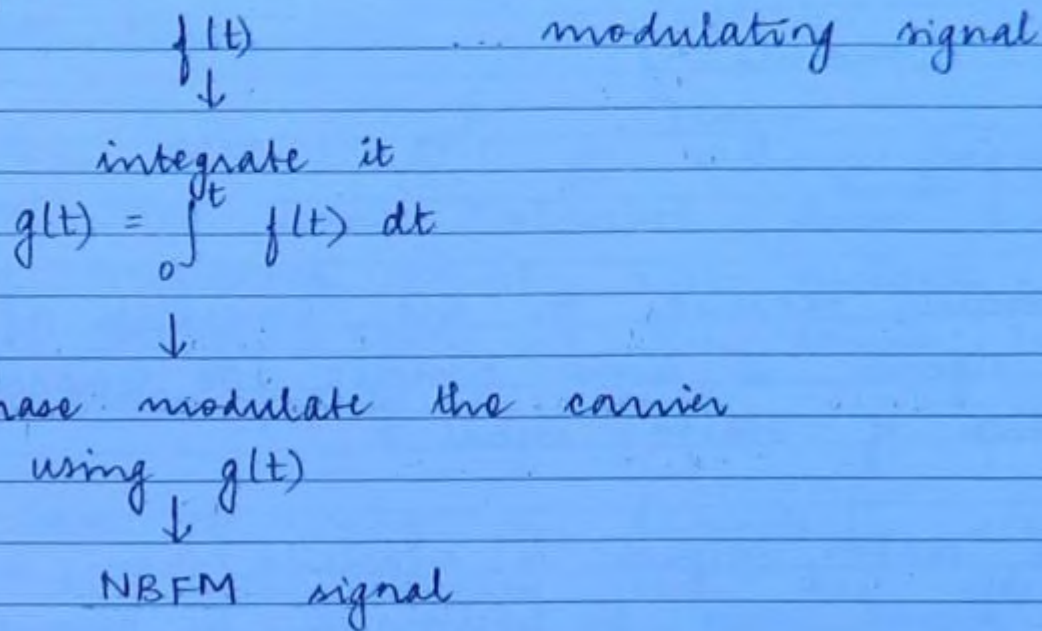 f(t) ... modulating signal
↓
integrate it
g(t) = ∫₀ᵗ f(t) dt
↓
hase modulate the carrier
using g(t)
↓
NBFM signal